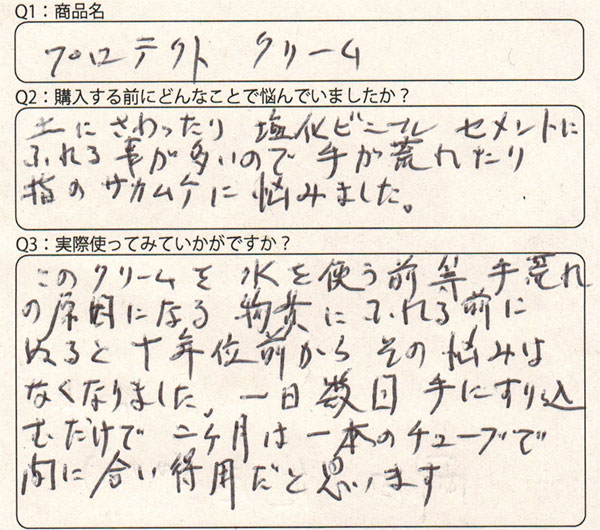 Q1：商品名
プロテクト クリーム
Q2：購入する前にどんなことで悩んでいましたか？
土にさわったり 塩化ビニール セメントに
ふれる事が多いので 手が荒れたり
指のサカムケに悩みました。
Q3：実際使ってみていかがですか？
このクリームを水を使う前等手荒れ
の原因になる物質にふれる前に
ぬると十年位前からその悩みは
なくなりました。一日数回手にすり込
むだけで二ヶ月は一本のチューブで
間に合い得用だと思います